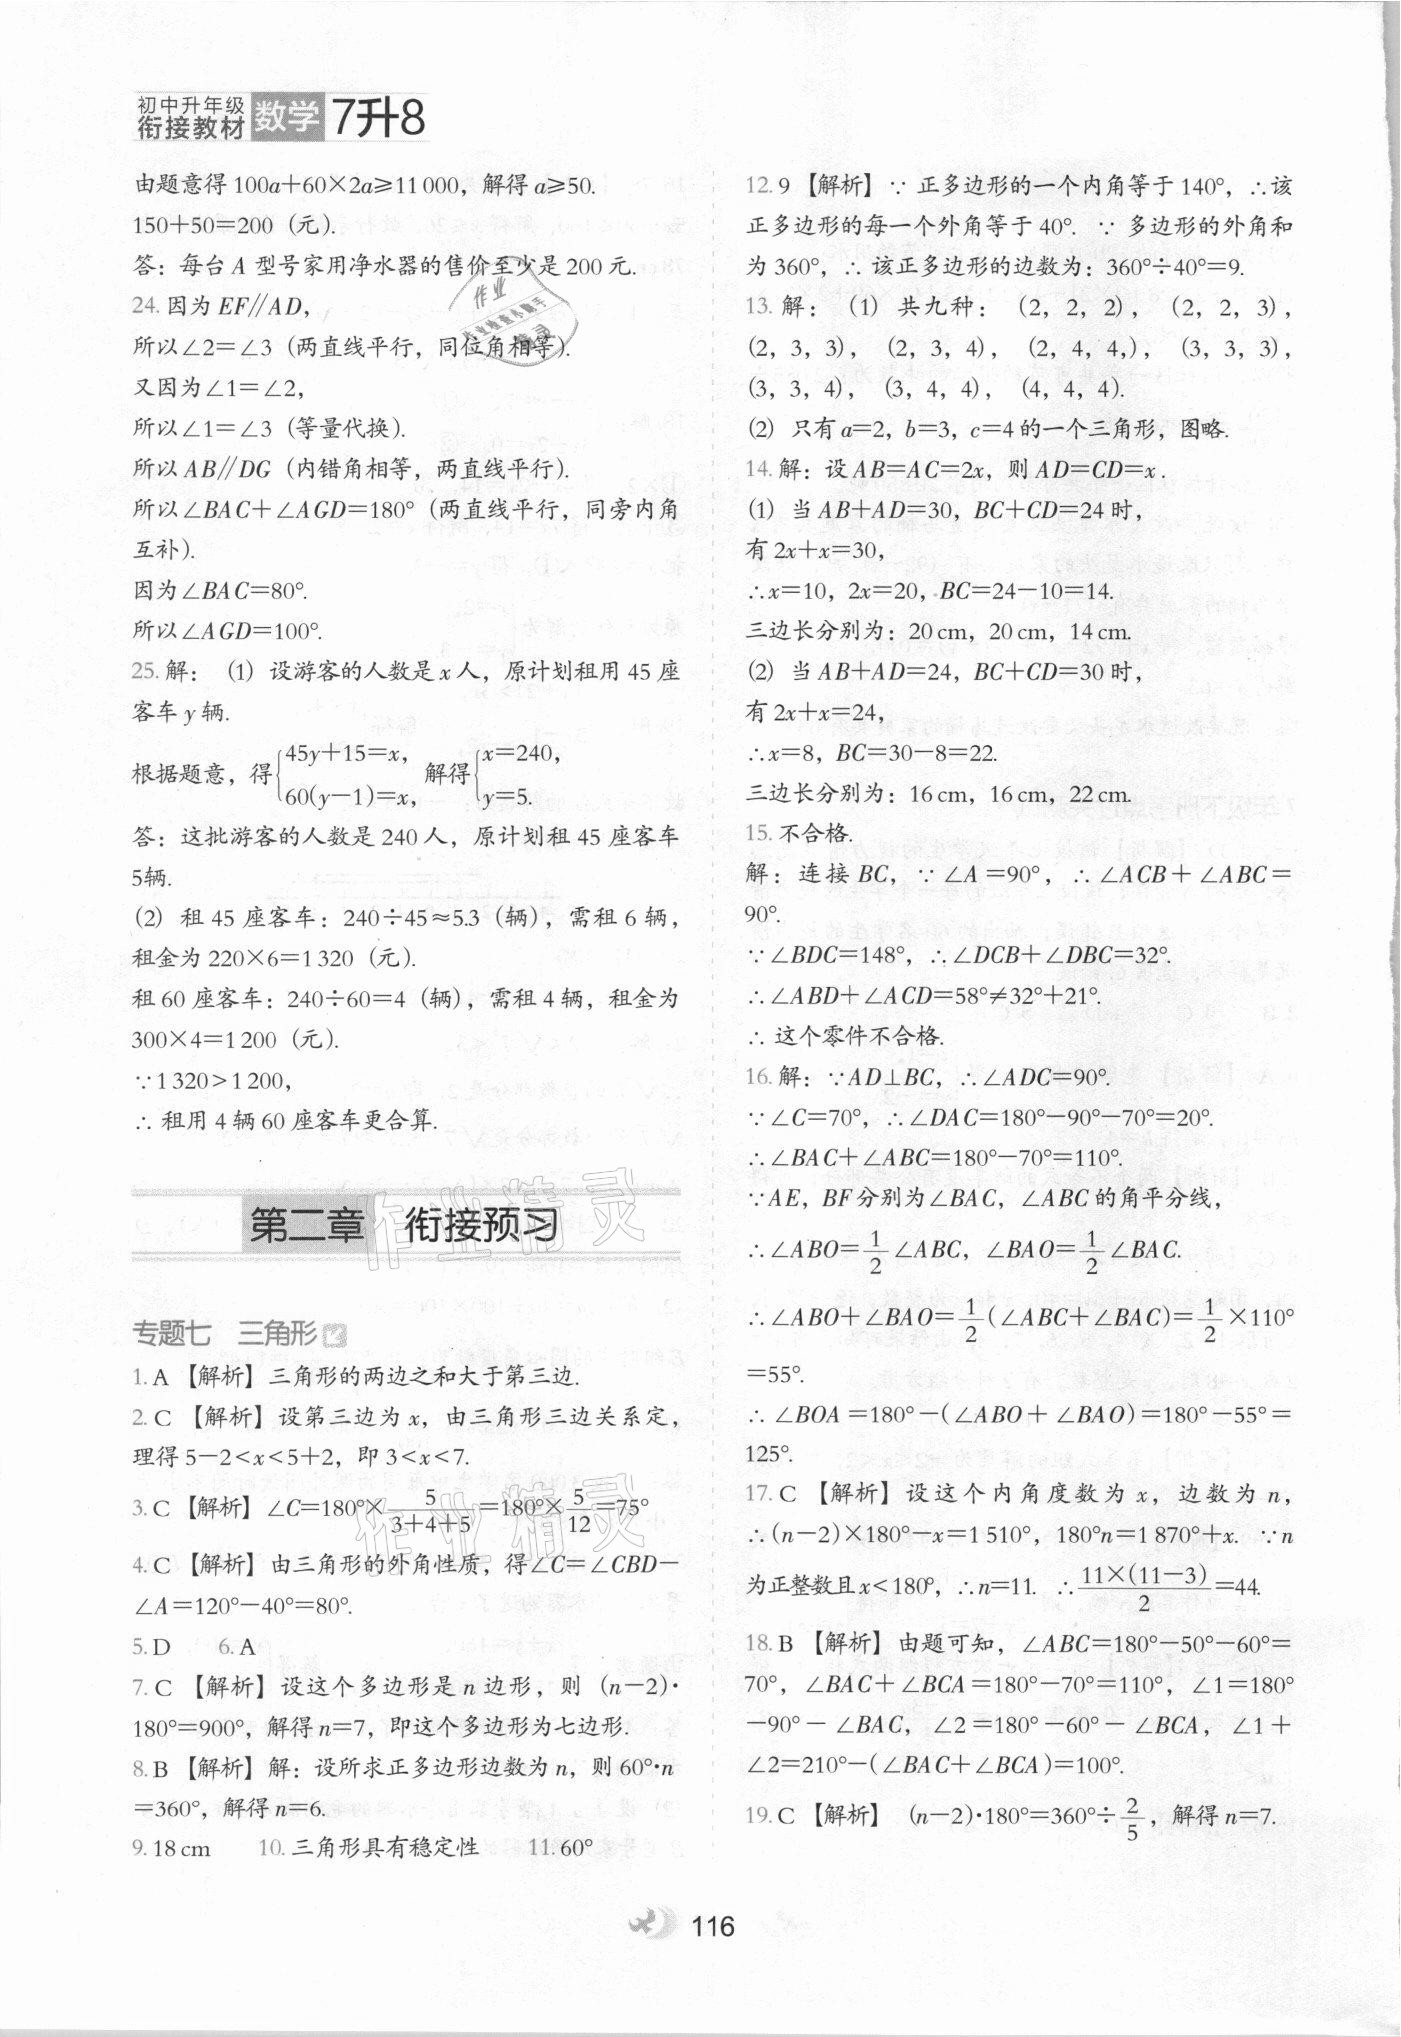 初中升年级
衔接教材 数学 7升8
由题意得100a+60×2a≥11 000，解得a≥50.
150+50=200（元）.
答：每台A型号家用净水器的售价至少是200元.
24.因为EF∥AD，
所以∠2=∠3（两直线平行，同位角相等）.
又因为∠1=∠2，
所以∠1=∠3（等量代换）.
所以AB∥DG（内错角相等，两直线平行）.
所以∠BAC+∠AGD=180°（两直线平行，同旁内角
互补）.
因为∠BAC=80°.
所以∠AGD=100°.
25.解：（1）设游客的人数是x人，原计划租用45座
客车y辆.
根据题意，得{45y+15=x，60(y−1)=x，解得{x=240，y=5.
答：这批游客的人数是240人，原计划租45座客车
5辆.
（2）租45座客车：240÷45≈5.3（辆），需租6辆，
租金为220×6=1 320（元）.
租60座客车：240÷60=4（辆），需租4辆，租金为
300×4=1 200（元）.
∵1 320>1 200，
∴租用4辆60座客车更合算.
第二章 衔接预习
专题七 三角形
1.A【解析】三角形的两边之和大于第三边.
2.C【解析】设第三边为x，由三角形三边关系定，
理得5−2<x<5+2，即3<x<7.
3.C【解析】∠C=180°×5/(3+4+5)=180°×5/12=75°
4.C【解析】由三角形的外角性质，得∠C=∠CBD−
∠A=120°−40°=80°.
5.D 6.A
7.C【解析】设这个多边形是n边形，则（n−2）·
180°=900°，解得n=7，即这个多边形为七边形.
8.B【解析】解：设所求正多边形边数为n，则60°·n
=360°，解得n=6.
9.18 cm 10.三角形具有稳定性 11.60°
12.9【解析】∵正多边形的一个内角等于140°，∴该
正多边形的每一个外角等于40°. ∵多边形的外角和
为360°，∴该正多边形的边数为：360°÷40°=9.
13.解：（1）共九种：（2，2，2），（2，2，3），
（2，3，3），（2，3，4），（2，4，4，），（3，3，3），
（3，3，4），（3，4，4），（4，4，4）.
（2）只有a=2，b=3，c=4的一个三角形，图略.
14.解：设AB=AC=2x，则AD=CD=x.
（1）当AB+AD=30，BC+CD=24时，
有2x+x=30，
∴x=10，2x=20，BC=24−10=14.
三边长分别为：20 cm，20 cm，14 cm.
（2）当AB+AD=24，BC+CD=30时，
有2x+x=24，
∴x=8，BC=30−8=22.
三边长分别为：16 cm，16 cm，22 cm.
15.不合格.
解：连接BC，∵∠A=90°，∴∠ACB+∠ABC=
90°.
∵∠BDC=148°，∴∠DCB+∠DBC=32°.
∴∠ABD+∠ACD=58°≠32°+21°.
∴这个零件不合格.
16.解：∵AD⊥BC，∴∠ADC=90°.
∵∠C=70°，∴∠DAC=180°−90°−70°=20°.
∴∠BAC+∠ABC=180°−70°=110°.
∵AE，BF分别为∠BAC，∠ABC的角平分线，
∴∠ABO=1/2∠ABC，∠BAO=1/2∠BAC.
∴∠ABO+∠BAO=1/2(∠ABC+∠BAC)=1/2×110°
=55°.
∴∠BOA=180°−(∠ABO+∠BAO)=180°−55°=
125°.
17.C【解析】设这个内角度数为x，边数为n，
∴(n−2)×180°−x=1 510°，180°n=1 870°+x. ∵n
为正整数且x<180°，∴n=11. ∴11×(11−3)/2=44.
18.B【解析】由题可知，∠ABC=180°−50°−60°=
70°，∠BAC+∠BCA=180°−70°=110°，∠1=180°
−90°−∠BAC，∠2=180°−60°−∠BCA，∠1+
∠2=210°−(∠BAC+∠BCA)=100°.
19.C【解析】(n−2)·180°=360°÷2/5，解得n=7.
116
作业精灵
作业精灵
作业
精灵